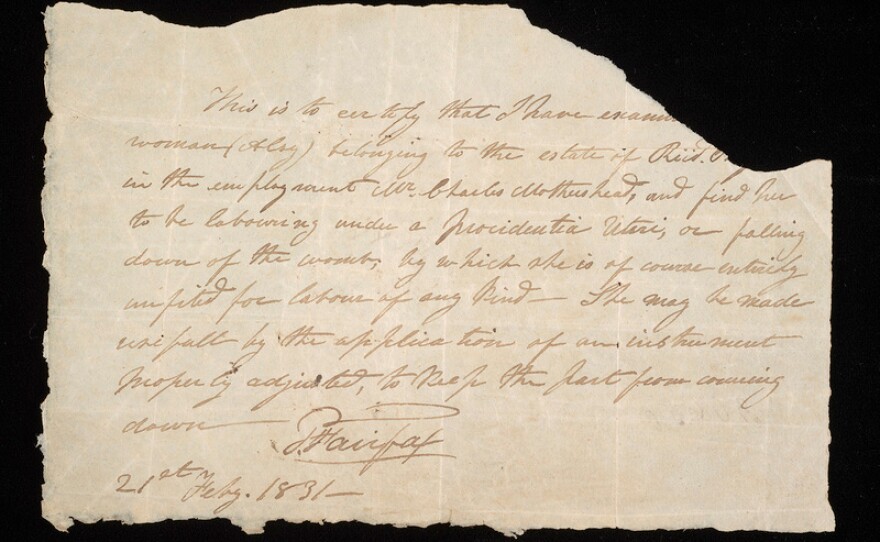 This is to certify that I have exam
woman (Alsy) belonging to the estate of Riid.
in the employment Mr. Charles Mothershead, and find her
to be labouring under a Procidentia Uteri, or falling
down of the womb, by which she is of course entirely
unfited for labour of any Kind — She may be made
usefull by the application of an instrument
properly adjusted, to keep the part from coming
down —
P. Fairfax
21st Feby. 1831 —